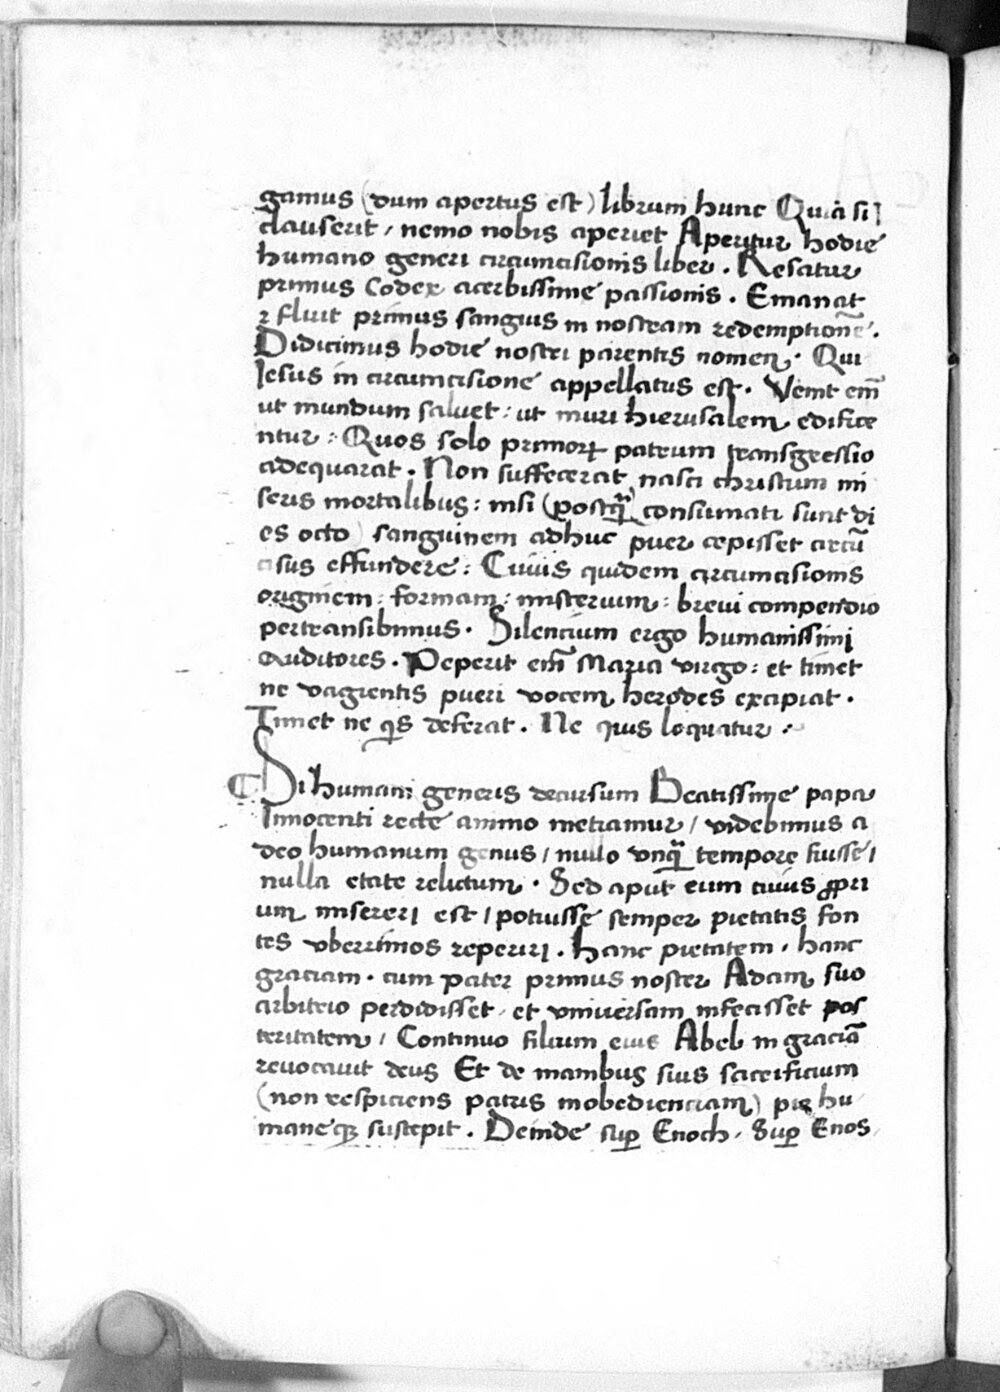 gamus (dum apertus est) librum hunc Quia si
clauserit / nemo nobis aperiet Aperitur hodie
humano generi circumcisionis liber . Resatur
primus Codex acerbissime passionis . Emanat
⁊ fluit primus sanguis in nostram redemptionē .
Didicimus hodie nostri parentis nomen . Qui
Iesus in circumcisione appellatus est . Venit em̄
ut mundum saluet : ut muri hierusalem edifice
ntur : Quos solo primorꝝ patrum transgressio
adequarat . Non suffecerat nasci christum mi
seris mortalibus : nisi (postq̄ consumati sunt di
es octo) sanguinem adhuc puer cepisset circū
cisus effundere : Cuius quidem circumcisionis
originem : formam : misterium : breui compendio
pertransibimus . Silencium ergo humanissimi
Auditores . Peperit em̄ Maria virgo : et timet
ne vagientis pueri vocem herodes excipiat .
Timet ne qis deferat . Ne quis loquatur :
Si humani generis decursum Beatissime papa
Innocenti recte animo metiamur / videbimus a
deo humanum genus / nullo vnq̄ tempore fuisse /
nulla etate relictum . Sed aput eum cuius ꝓpri
um misereri est / potuisse semper pietatis fon
tes vberrimos reperiri . hanc pietatem . hanc
graciam . cum pater primus noster Adam suo
arbitrio perdidisset . et vniuersam infecisset pos
teritatem / Continuo filium eius Abel in graciā
reuocauit deus Et de manibus suis sacrificium
(non respiciens patris inobedienciam) pie hu
maneqꝫ suscepit . Deinde suꝑ Enoch . Suꝑ Enos